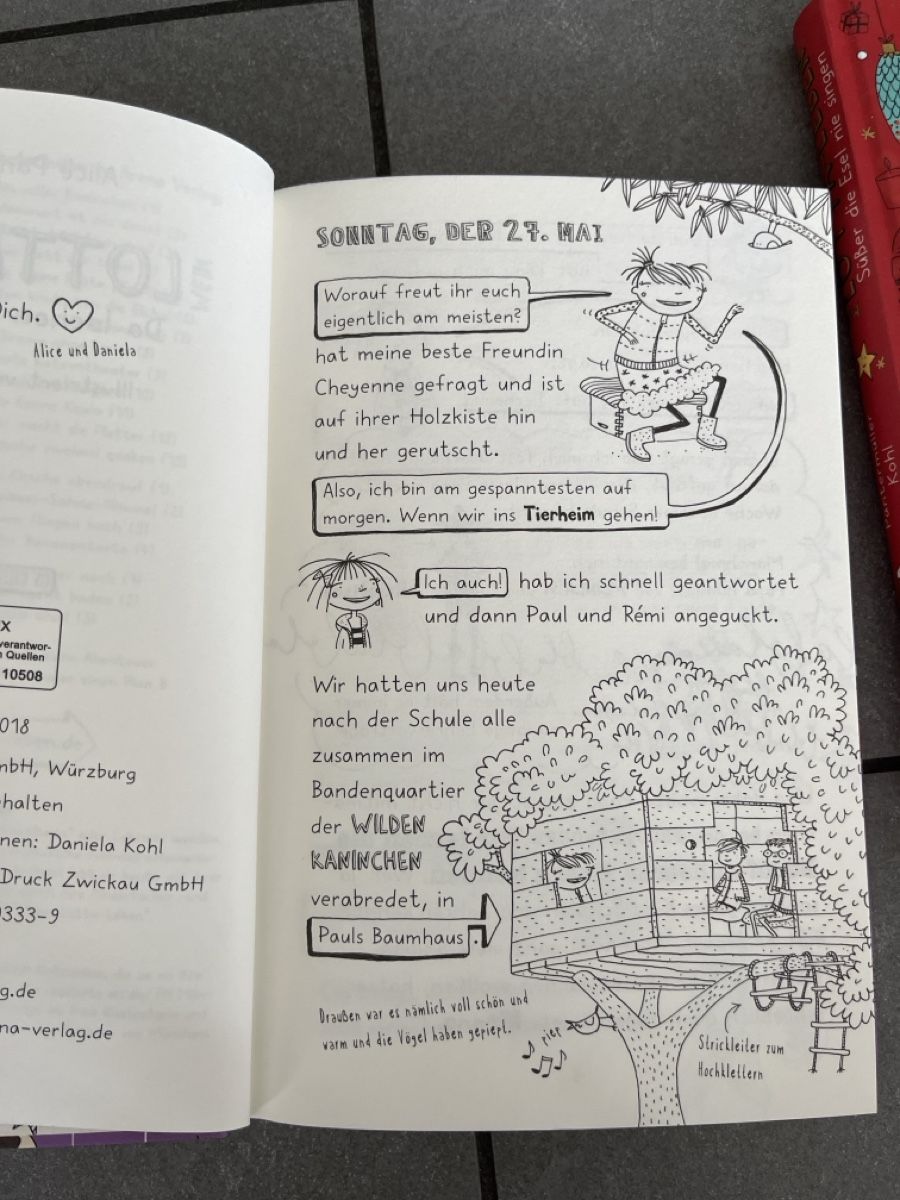 Dich.
Alice und Daniela
X
verantwor-
n Quellen
10508
018
mbH, Würzburg
ehalten
nen: Daniela Kohl
Druck Zwickau GmbH
0333-9
g.de
na-verlag.de
SONNTAG, DER 27. MAI
Worauf freut ihr euch
eigentlich am meisten?
hat meine beste Freundin
Cheyenne gefragt und ist
auf ihrer Holzkiste hin
und her gerutscht.
Also, ich bin am gespanntesten auf
morgen. Wenn wir ins Tierheim gehen!
Ich auch! hab ich schnell geantwortet
und dann Paul und Rémi angeguckt.
Wir hatten uns heute
nach der Schule alle
zusammen im
Bandenquartier
der WILDEN
KANINCHEN
verabredet, in
Pauls Baumhaus.
Draußen war es nämlich voll schön und
warm und die Vögel haben gepiept.
piep
Strickleiter zum
Hochklettern
Süßer die Esel nie singen
Kohl